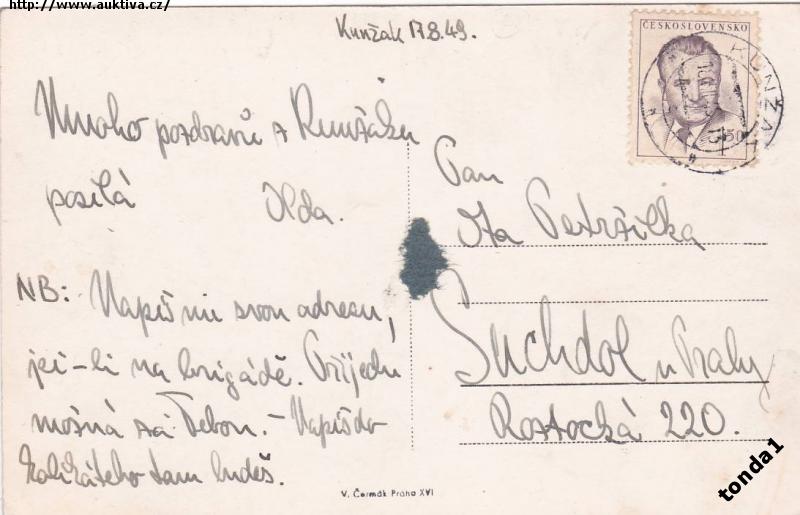 http://www.auktiva.cz/
Kunžak 17.8.49.
ČESKOSLOVENSKO
KUNŽAK
1·50
Mnoho pozdravů z Kunžaku
posílá Olda.
NB: Napiš mi svou adresu,
jsi-li na brigádě. Přijedu
možná za Tebou. - Napiš do
kolikátého tam budeš.
Pan
Ota Petržilka
Suchdol u Prahy
Roztocká 220.
V. Čermák Praha XVI
tonda1